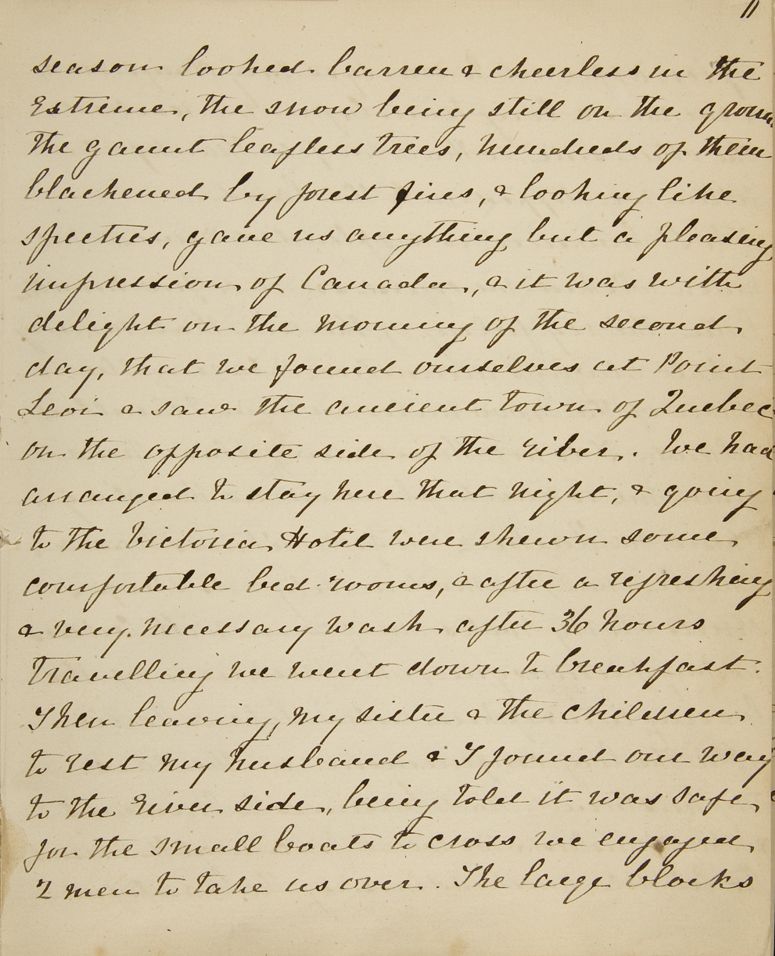 11
season looked barren & cheerless in the
Extreme, the snow being still on the groun
the gaunt leafless trees, hundreds of them
blackened by forest fires, & looking like
spectres, gave us anything but a pleasing
impression of Canada, & it was with
delight on the morning of the second
day, that we found ourselves at Point
Levi & saw the ancient town of Quebec
on the opposite side of the river. We had
arranged to stay here that night, & going
to the Victoria Hotel were shewn some
comfortable bed-rooms, & after a refreshing
& very necessary wash after 36 hours
travelling we went down to breakfast.
Then leaving my sister & the children
to rest my husband & I found our way
to the river side, being told it was safe
for the small boats to cross we engaged
2 men to take us over. The large blocks